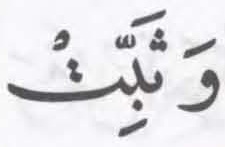 وَ ثَبِّتْ